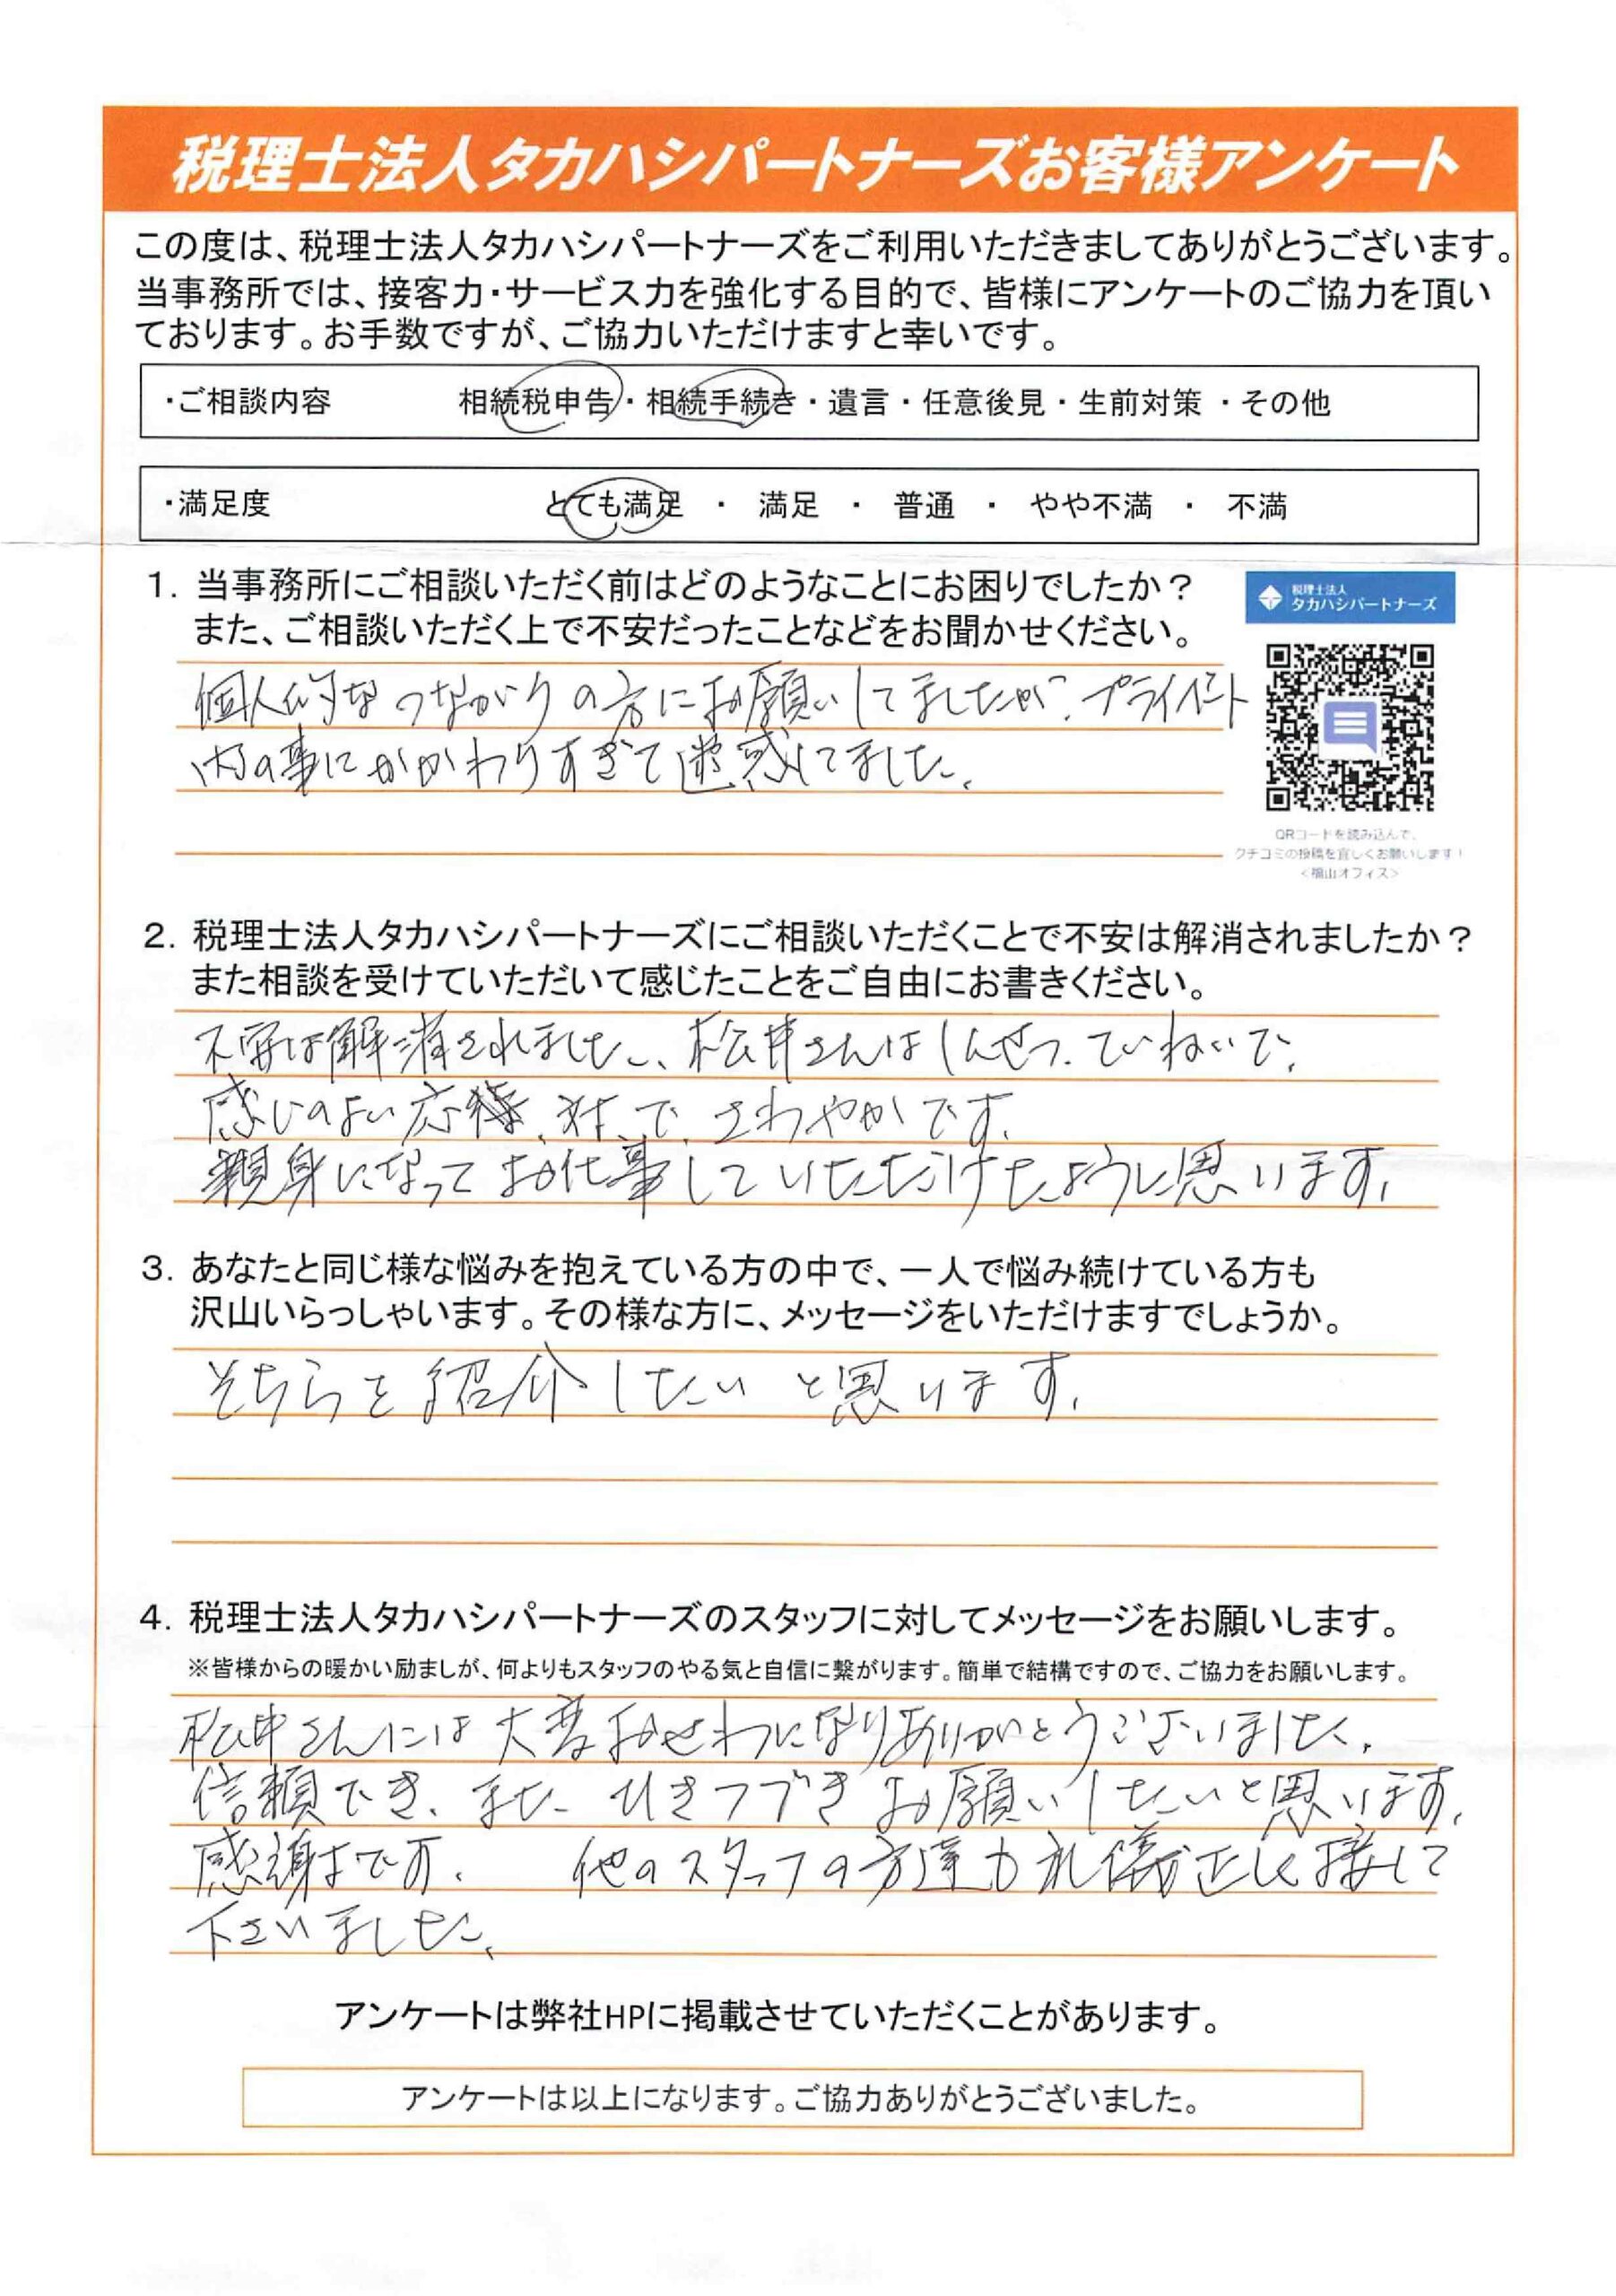 税理士法人タカハシパートナーズお客様アンケート
この度は、税理士法人タカハシパートナーズをご利用いただきましてありがとうございます。
当事務所では、接客力・サービス力を強化する目的で、皆様にアンケートのご協力を頂い
ております。お手数ですが、ご協力いただけますと幸いです。
・ご相談内容 相続税申告・相続手続き・遺言・任意後見・生前対策 ・その他
・満足度 とても満足 ・ 満足 ・ 普通 ・ やや不満 ・ 不満
1. 当事務所にご相談いただく前はどのようなことにお困りでしたか？
また、ご相談いただく上で不安だったことなどをお聞かせください。
税理士法人
タカハシパートナーズ
個人的なつながりの方にお願いしてましたが、プライベート
内の事にかかわりすぎて迷惑してました。
QRコードを読み込んで、
クチコミの投稿を宜しくお願いします！
＜福山オフィス＞
2. 税理士法人タカハシパートナーズにご相談いただくことで不安は解消されましたか？
また相談を受けていただいて感じたことをご自由にお書きください。
不安は解消されました、松井さんはしんせつ、ていねいで、
感じのよい応対で、さわやかです。
親身になってお仕事していただけたように思います。
3. あなたと同じ様な悩みを抱えている方の中で、一人で悩み続けている方も
沢山いらっしゃいます。その様な方に、メッセージをいただけますでしょうか。
そちらを紹介したいと思います。
4. 税理士法人タカハシパートナーズのスタッフに対してメッセージをお願いします。
※皆様からの暖かい励ましが、何よりもスタッフのやる気と自信に繋がります。簡単で結構ですので、ご協力をお願いします。
松井さんには大変おせわになりありがとうございました。
信頼でき、また ひきつづきお願いしたいと思います。
感謝です。 他のスタッフの方達も礼儀正しく接して
下さいました。
アンケートは弊社HPに掲載させていただくことがあります。
アンケートは以上になります。ご協力ありがとうございました。